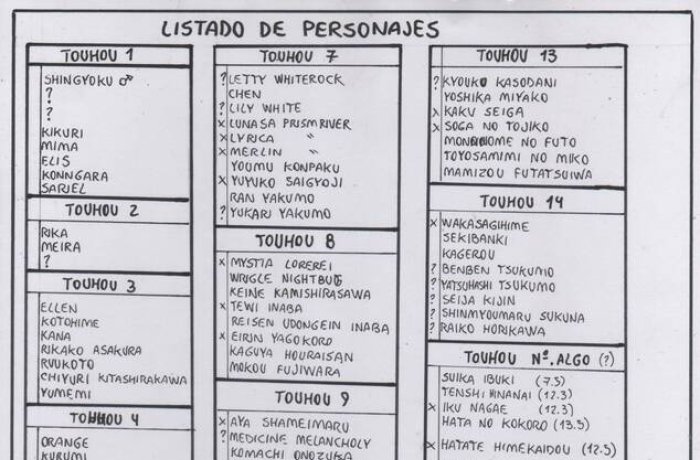 LISTADO DE PERSONAJES
TOUHOU 1
SHINGYOKU ♂
?
?
KIKURI
MIMA
ELIS
KONNGARA
SARIEL
TOUHOU 2
RIKA
MEIRA
?
TOUHOU 3
ELLEN
KOTOHIME
KANA
RIKAKO ASAKURA
RUUKOTO
CHIYURI KITASHIRAKAWA
YUMEMI
TOUHOU 4
ORANGE
KURUMI
TOUHOU 7
? LETTY WHITEROCK
CHEN
? LILY WHITE
X LUNASA PRISMRIVER
X LYRICA "
X MERLIN "
YOUMU KONPAKU
X YUYUKO SAIGYOJI
RAN YAKUMO
? YUKARI YAKUMO
TOUHOU 8
X MYSTIA LORELEI
WRIGLE NIGHTBUG
KEINE KAMISHIRASAWA
X TEWI INABA
REISEN UDONGEIN INABA
X EIRIN YAGOKORO
KAGUYA HOURAISAN
MOKOU FUJIWARA
TOUHOU 9
X AYA SHAMEIMARU
? MEDICINE MELANCHOLY
KOMACHI ONOZUKA
TOUHOU 13
? KYOUKO KASODANI
YOSHIKA MIYAKO
X KAKU SEIGA
X SOGA NO TOJIKO
MONONOME NO FUTO
TOYOSAMIMI NO MIKO
MAMIZOU FUTATSUIWA
TOUHOU 14
X WAKASAGIHIME
SEKIBANKI
KAGEROU
? BENBEN TSUKUMO
? YATSUHASHI TSUKUMO
? SEIJA KIJIN
? SHINMYOUMARU SUKUNA
? RAIKO HORIKAWA
TOUHOU Nº. ALGO (?)
SUIKA IBUKI (7.5)
TENSHI HINANAI (12.3)
X IKU NAGAE (12.3)
HATA NO KOKORO (13.5)
X HATATE HIMEKAIDOU (12.5)